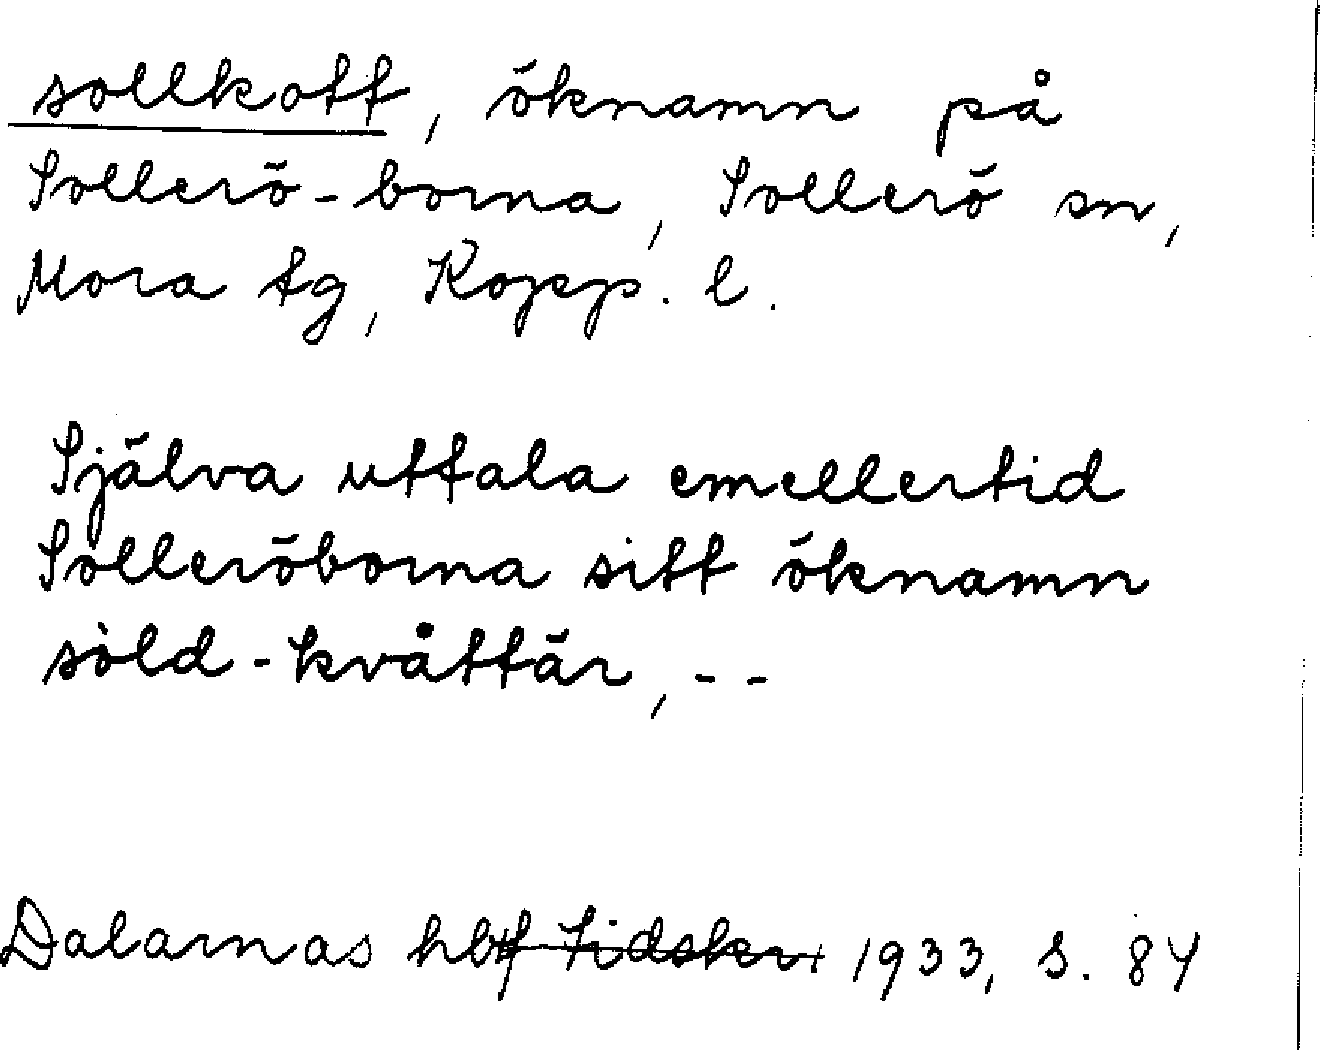 sollkott, öknamn på
Sollerö-borna, Sollerö sn,
Mora tg, Kopp. l.
Själva uttala emellertid
Solleröborna sitt öknamn
sòld-kvåttär, --
Dalarnas hbf Tidskr. 1933, S. 84